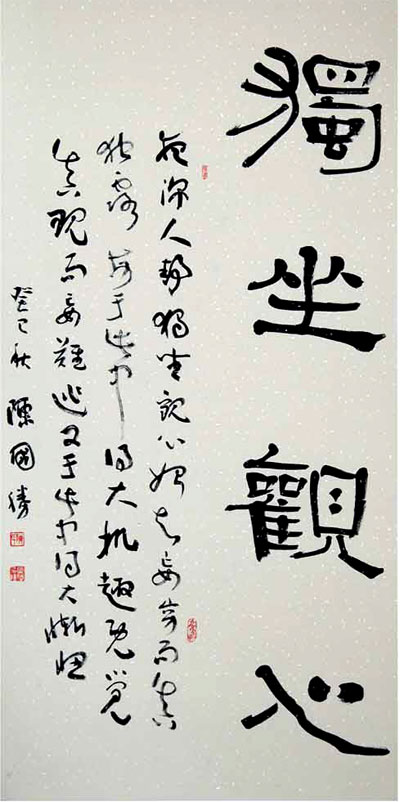 獨坐觀心
夜深人静獨坐觀心始知妄穷而真
独露每于此中得大机趣既覺
真現而妄難逃又于此中得大慚忸
癸巳秋陳國勝